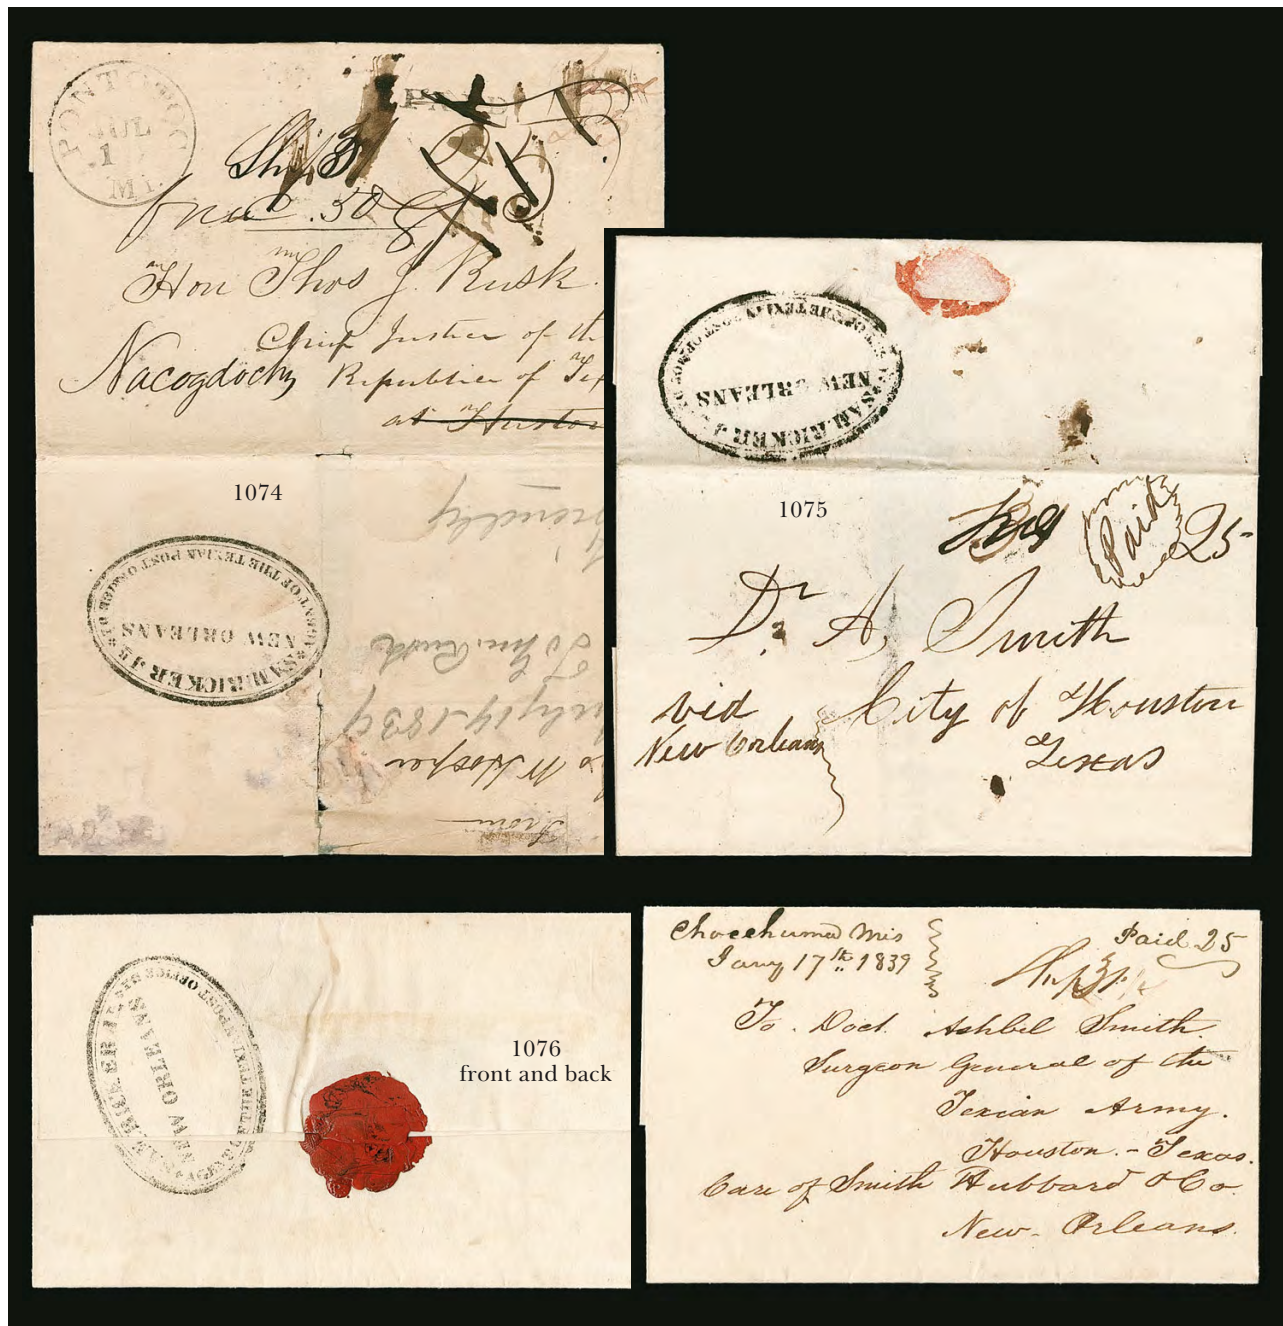 PONTOTOC
JUL
1
MI.
PAID
Ship
due .50
Hon Thos J. Rusk
Chief Justice of the
Nacogdoches Republic of Tex
at Huston
1074
SAM. RICKER JR
AGENT OF THE TEXIAN POST OFFICE DEPT
NEW ORLEANS
friendly
July 14 1839
From
SAM. RICKER JR
AGENT OF THE TEXIAN POST OFFICE DEPT
NEW ORLEANS
1075
Paid 25
Dr A, Smith
via City of Houston
New Orleans Texas
SAM. RICKER JR
AGENT OF THE TEXIAN POST OFFICE DEPT
NEW ORLEANS
1076
front and back
Chocchuma Mis Paid 25
Jany 17th 1839
Ship
To. Doct. Ashbel Smith
Surgeon General of the
Texian Army.
Houston. - Texas.
Care of Smith Hubbard & Co
New-Orleans.